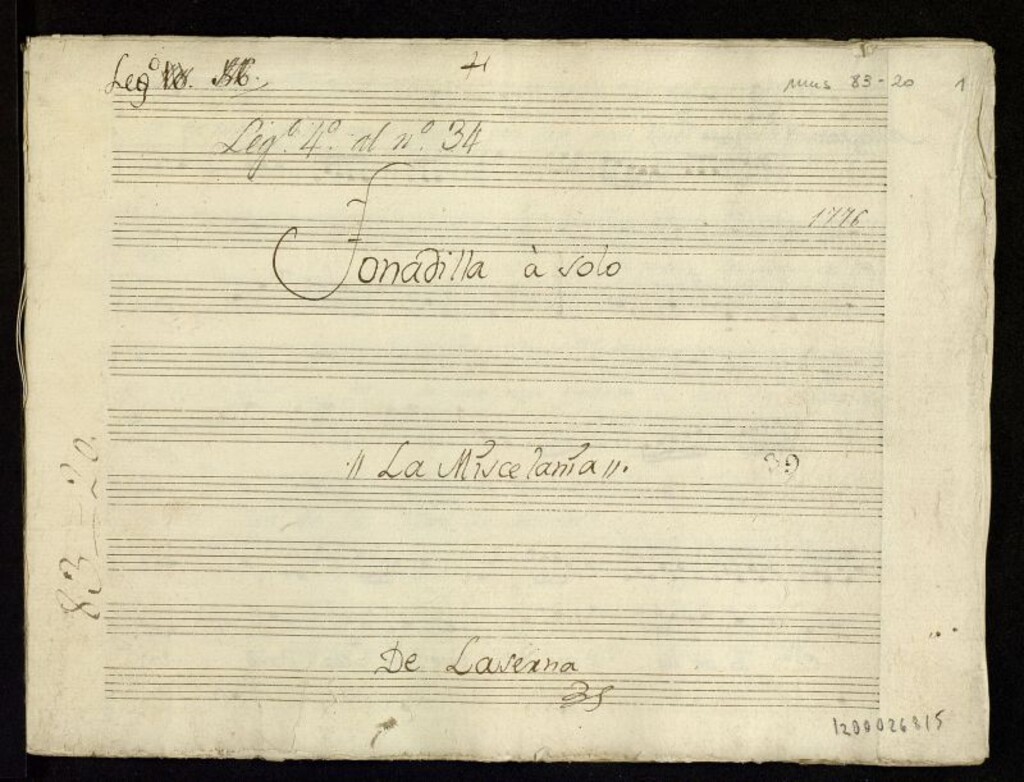 Legº
mus 83-20 1
Legº. 4º. al nº. 34
1776
Tonadilla à solo
.,, La Miscelania ,,.
39
83-20.
De Laserna
1200026815